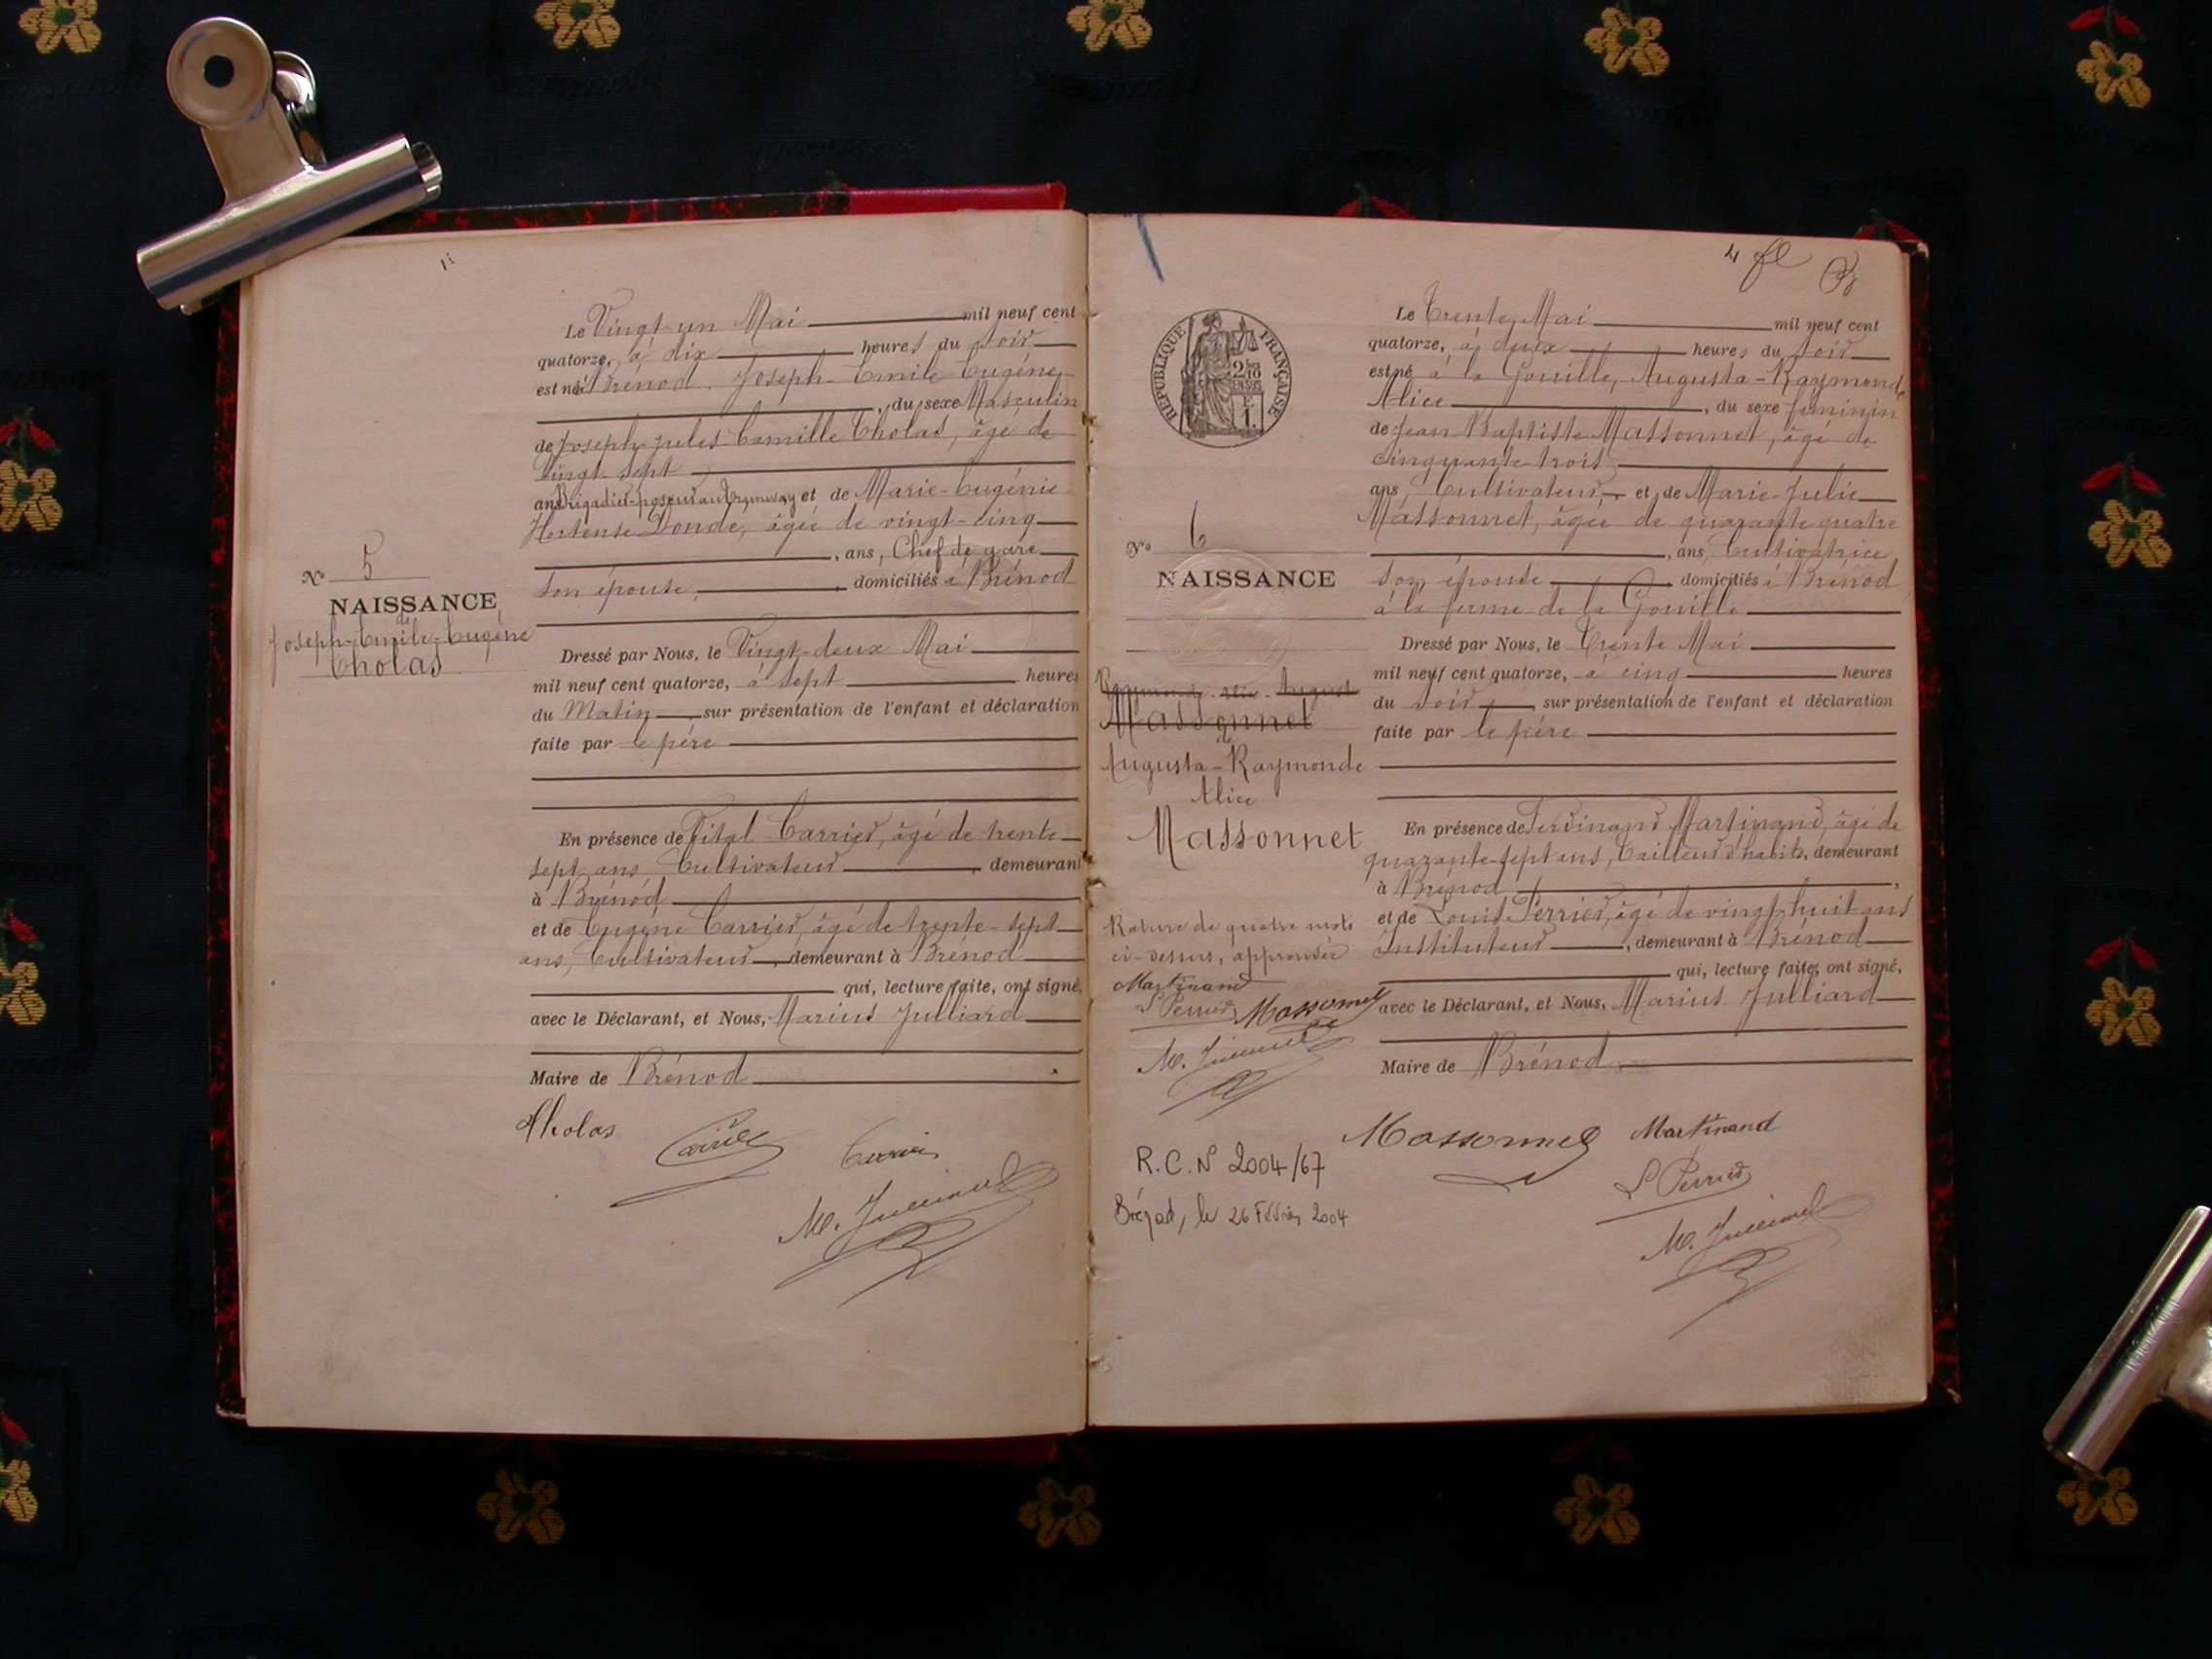 Le Vingt-un Mai mil neuf cent
quatorze, à dix heures du soir
est né à Brénod Joseph-Emile-Eugène
, du sexe Masculin
de Joseph Jules Camille Tholas, âgé de
vingt-sept
ans Brigadier-poseur au Tramway et de Marie-Eugénie
Hortense Donde, âgée de vingt-cinq
, ans, Chef de gare
son épouse, domiciliés à Brénod
N° 5
NAISSANCE
de
Joseph-Emile-Eugène
Tholas
Dressé par Nous, le Vingt-deux Mai
mil neuf cent quatorze, à sept heures
du Matin, sur présentation de l'enfant et déclaration
faite par le père
En présence de Vital Carrier, âgé de trente-
sept ans, Cultivateur, demeurant
à Brénod
et de Eugène Carrier, âgé de trente-sept
ans, Cultivateur, demeurant à Brénod
qui, lecture faite, ont signé,
avec le Déclarant, et Nous, Marius Julliard
Maire de Brénod
Tholas
Carrier
Carrier
M. Julliard
4 fl
REPUBLIQUE FRANÇAISE
2/10
EN SUS
F.
1.
Le Trente Mai mil neuf cent
quatorze, à deux heures du soir
est né à la Gouille, Augusta-Raymonde
Alice, du sexe féminin
de Jean Baptiste Massonnet, âgé de
cinquante trois
ans, Cultivateur, et de Marie-Julie
Massonnet, âgée de quarante quatre
, ans, Cultivatrice
son épouse, domiciliés à Brénod
à la ferme de la Gouille
N° 6
NAISSANCE
Raymonde-Alice-Augusta
Massonnet
de
Augusta-Raymonde
Alice
Massonnet
Rature de quatre mots
ci-dessus, approuvée
Martinand
L Perrier Massonnet
M. Julliard
R.C. N° 2004/67
Brénod, le 26 Février 2004
Dressé par Nous, le Trente Mai
mil neuf cent quatorze, à cinq heures
du soir, sur présentation de l'enfant et déclaration
faite par le père
En présence de Ferdinand Martinand, âgé de
quarante-sept ans, Tailleur d'habits, demeurant
à Brénod,
et de Louis Perrier, âgé de vingt-huit ans
Instituteur, demeurant à Brénod
qui, lecture faite, ont signé,
avec le Déclarant, et Nous, Marius Julliard
Maire de Brénod
Massonnet Martinand
L Perrier
M. Julliard